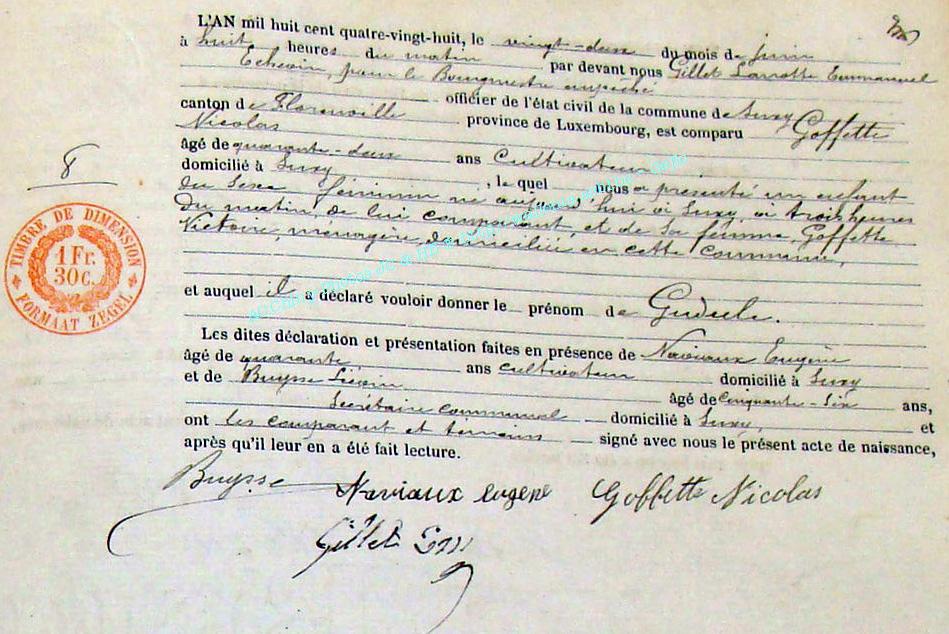 L'AN mil huit cent quatre-vingt-huit, le vingt-deux du mois de juin
à huit heures du matin par devant nous Gillet Lanotte Emmanuel
Echevin, pour le Bourgmestre empêché
officier de l'état civil de la commune de Suxy
canton de Florenville province de Luxembourg, est comparu Goffette
Nicolas
âgé de quarante-deux ans Cultivateur
domicilié à Suxy, le quel nous a présenté un enfant
du Sexe féminin né aujourd'hui à Suxy, à trois heures
du matin, de lui comparant, et de Sa femme, Goffette
Victoire, ménagère, domiciliée en cette commune,
et auquel il a déclaré vouloir donner le prénom de Gudule.
Les dites déclaration et présentation faites en présence de Naviaux Eugène
âgé de quarante ans cultivateur domicilié à Suxy
et de Buysse Liévin âgé de Cinquante-Six ans,
Secrétaire communal domicilié à Suxy, et
ont les comparant et témoins signé avec nous le présent acte de naissance,
après qu'il leur en a été fait lecture.
8
TIMBRE DE DIMENSION
1 Fr.
30 c.
FORMAAT ZEGEL
Buysse Naviaux eugène Goffette Nicolas
Gillet Em